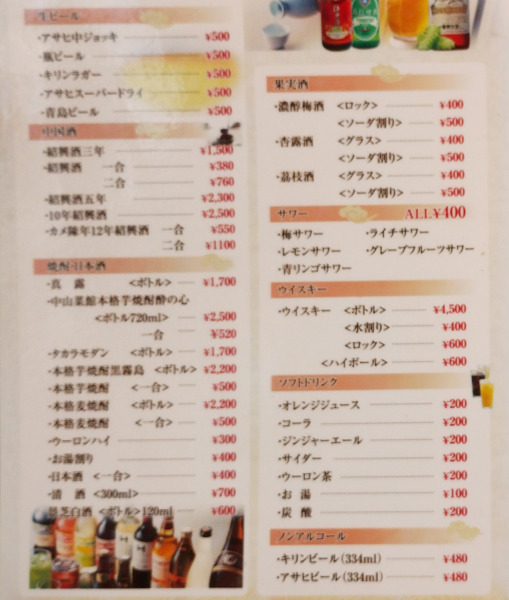 生ビール
・アサヒ中ジョッキ ¥500
・瓶ビール ¥500
・キリンラガー ¥500
・アサヒスーパードライ ¥500
・青島ビール ¥500
中国酒
・紹興酒三年 ¥1,500
・紹興酒 一合 ¥380
二合 ¥760
・紹興酒五年 ¥2,300
・10年紹興酒 ¥2,500
・カメ陳年12年紹興酒 一合 ¥550
二合 ¥1100
焼酎・日本酒
・真 露 <ボトル> ¥1,700
・中山菜館本格芋焼酎酔の心
<ボトル720ml> ¥2,500
一合 ¥520
・タカラモダン <ボトル> ¥1,700
・本格芋焼酎黒霧島 <ボトル> ¥2,200
・本格芋焼酎 <一合> ¥500
・本格麦焼酎 <ボトル> ¥2,200
・本格麦焼酎 <一合> ¥500
・ウーロンハイ ¥300
・お湯割り ¥400
・日本酒 <一合> ¥400
・清 酒 <300ml> ¥700
・景芝白酒 <ボトル>120ml ¥600
果実酒
・濃醇梅酒 <ロック> ¥400
<ソーダ割り> ¥500
・杏露酒 <グラス> ¥400
<ソーダ割り> ¥500
・茘枝酒 <グラス> ¥400
<ソーダ割り> ¥500
サワー ALL¥400
・梅サワー ・ライチサワー
・レモンサワー ・グレープフルーツサワー
・青リンゴサワー
ウイスキー
・ウイスキー <ボトル> ¥4,500
<水割り> ¥400
<ロック> ¥600
<ハイボール> ¥600
ソフトドリンク
・オレンジジュース ¥200
・コーラ ¥200
・ジンジャーエール ¥200
・サイダー ¥200
・ウーロン茶 ¥200
・お 湯 ¥100
・炭 酸 ¥200
ノンアルコール
・キリンビール(334ml) ¥480
・アサヒビール(334ml) ¥480